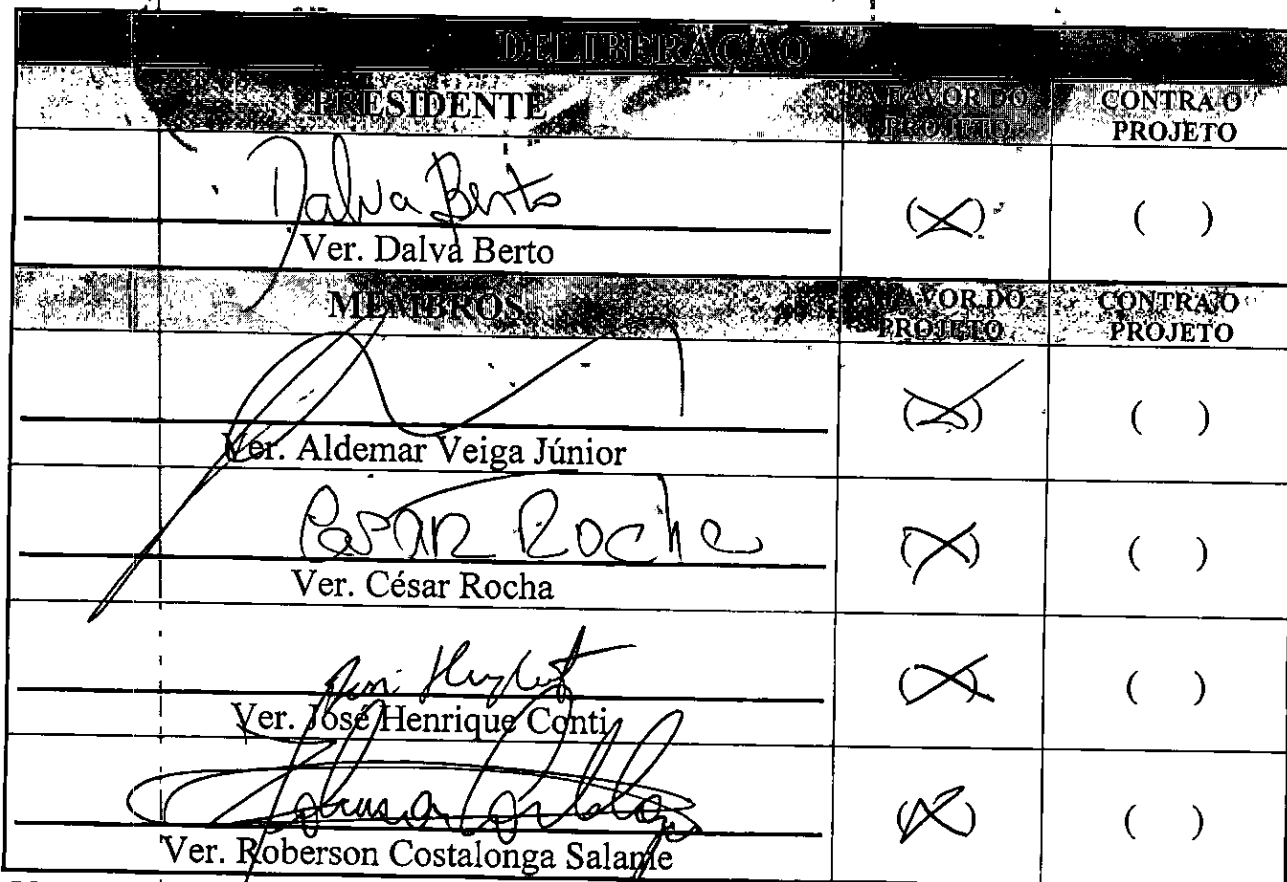 DELIBERAÇÃO
PRESIDENTE A FAVOR DO PROJETO CONTRA O PROJETO
Dalva Berto
Ver. Dalva Berto (X) ( )
MEMBROS A FAVOR DO PROJETO CONTRA O PROJETO
Ver. Aldemar Veiga Júnior (X) ( )
César Rocha
Ver. César Rocha (X) ( )
Ver. José Henrique Conti (X) ( )
Ver. Roberson Costalonga Salame (X) ( )